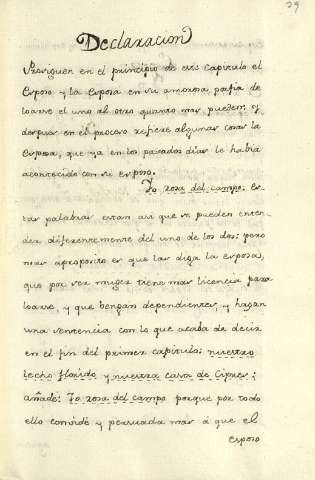 29
Declaracion
Prosiguen en el principio de este Capitulo el
Esposo y la Esposa en su amorosa porfia de
loarse el uno al otro quanto mas pueden: y
despues en el proceso refiere algunas cosas la
Esposa, que ya en los pasados dias le habia
acontecido con su Esposo.
Yo rosa del campo: es-
tas palabras estan asi que se pueden enten-
der diferentemente del uno de los dos: pero
mas aproposito es que las diga la esposa,
que por ser muger tiene mas licencia para
loarse, y que bengan dependientes, y hagan
una sentencia con lo que acaba de decir
en el fin del primer capitulo: nuestro
lecho florido y nuestra casa de Cipres;
añade: Yo rosa del campo porque por todo
ello convide y persuada mas á que el
esposo